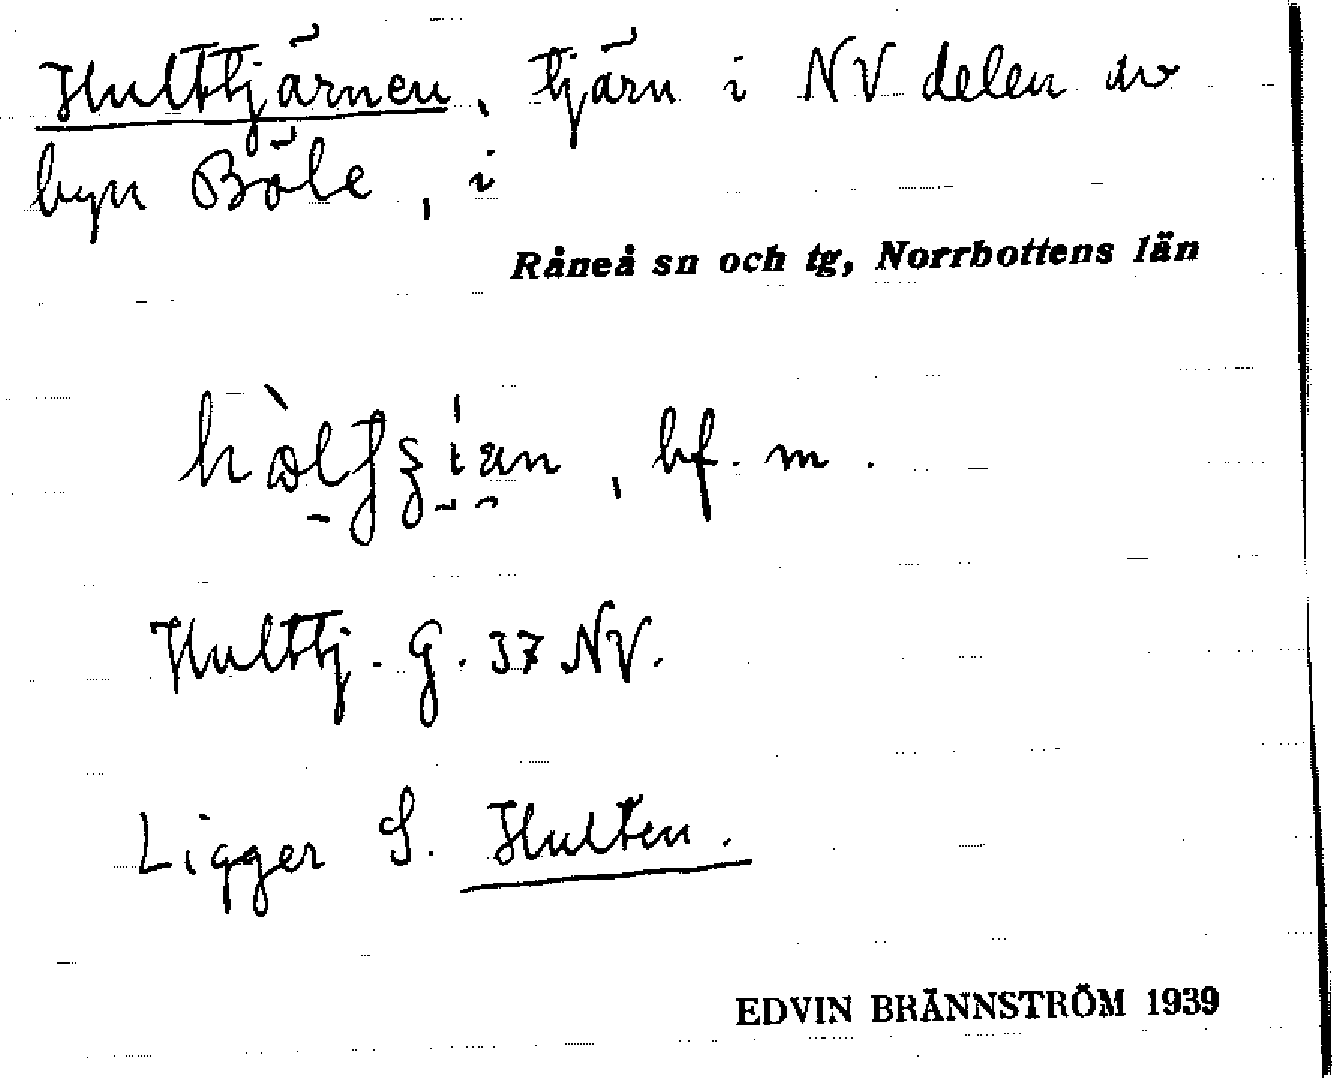 Hulttjärnen, tjärn i NV delen av
byn Böle, i
Råneå sn och tg, Norrbottens län
, bf. m.
Hulttj. G. 37 NV.
Ligger S. Hulten.
EDVIN BRÄNNSTRÖM 1939